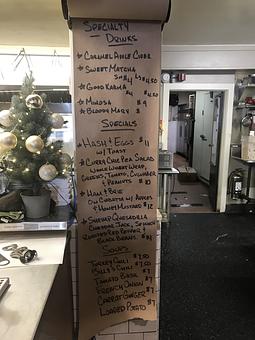 Specialty
Drinks
* Caramel Apple Cider
* Sweet Matcha
Sm $4 Lg $4.50
* Good Karma
$4 $4.50
* Mimosa $9
* Bloody Mary 9
Specials
* Hash & Eggs $11
w/ Toast
* Curry Chic Pea Salad
Whole Wheat Wrap,
Greens, Tomato, Cucumber
& Peanuts $10
* Ham & Brie
On Ciabatta w/ Apples
& Honey Mustard $12
* Shrimp Quesadilla
Cheddar Jack, Spinach
Roasted Red Pepper &
Black Beans
Soups
Turkey Chili $7.50
Bill's Chili $7.50
Tomato Basil $7
French Onion $7
Carrot Ginger $7
Loaded Potato $7